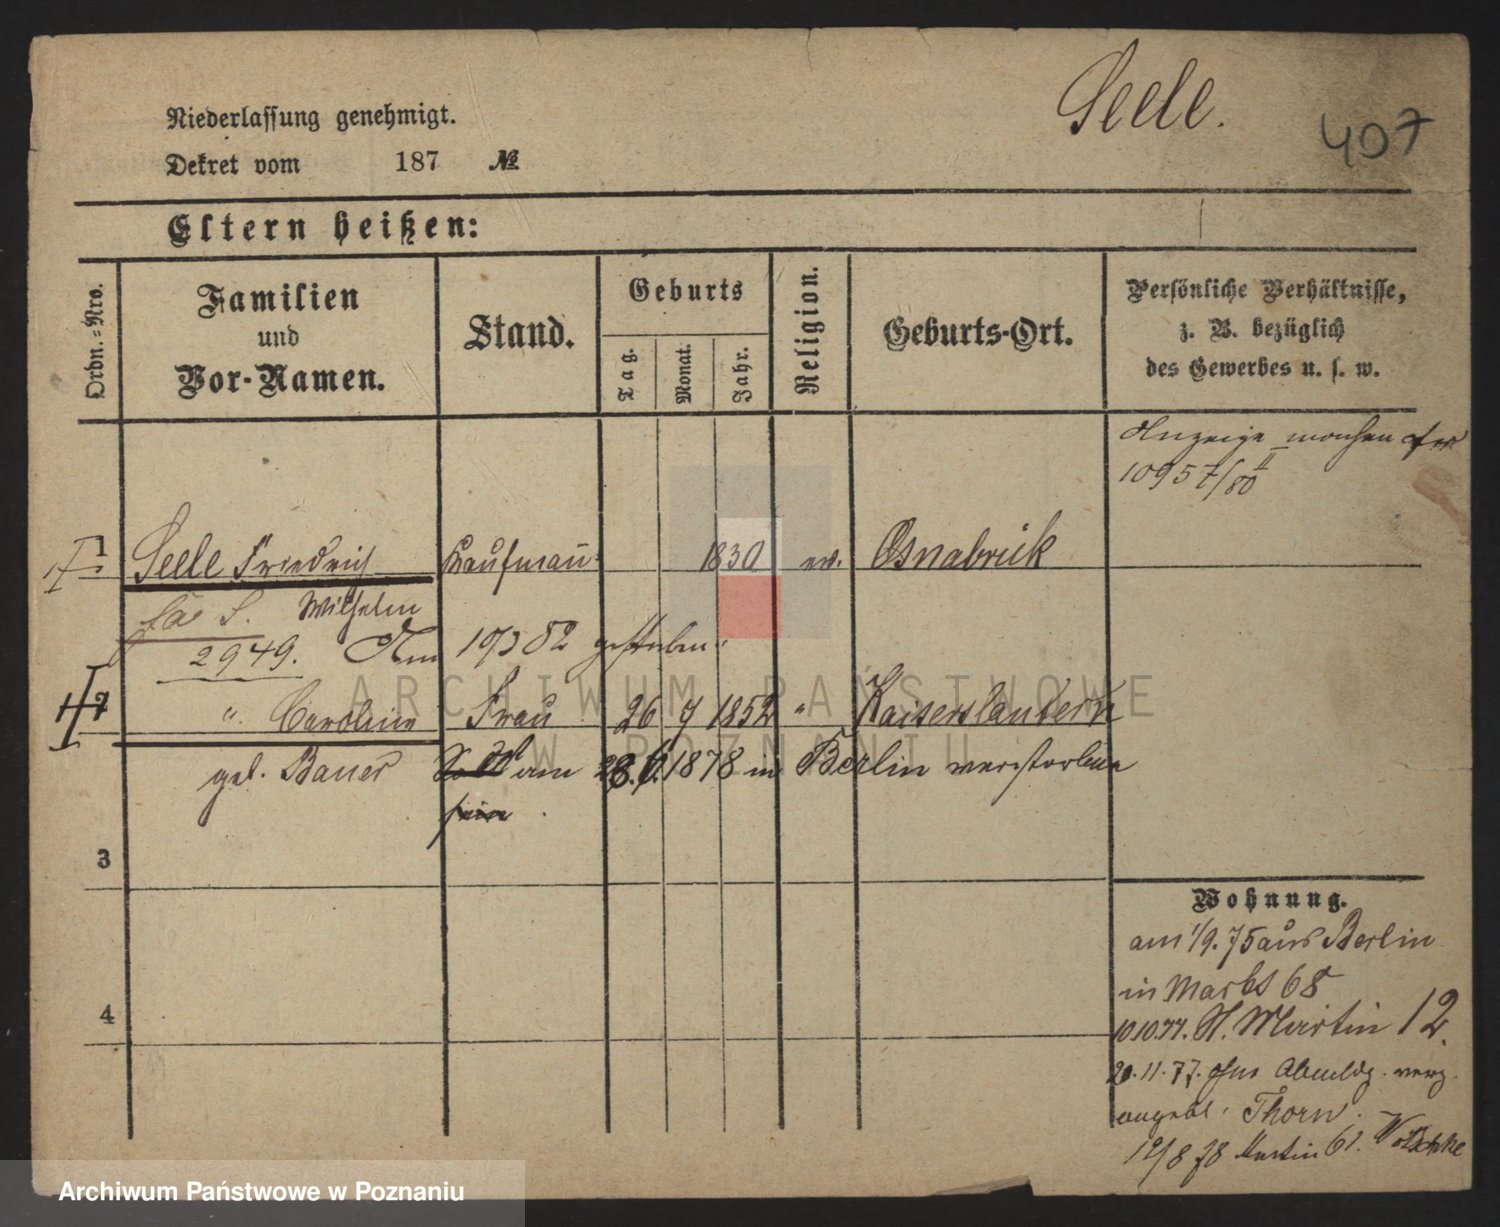 Seele.
407
Niederlassung genehmigt.
Dekret vom 187 №
Eltern heißen:
Ordn.=Nro.
Familien
und
Vor-Namen.
Stand.
Geburts
Tag.
Monat.
Jahr.
Religion.
Geburts-Ort.
Persönliche Verhältnisse,
z. B. bezüglich
des Gewerbes u. s. w.
Anzeige machen
10957/80 II
1 Seele Friedrich Kaufmann 1830 ev. Osnabrück
Wilhelm
2949. Am 19/3 82 gestorben.
2 " Caroline Frau 26 7 1852 " Kaiserslautern
geb. Bauer am 28.6.1878 in Berlin verstorben
sein.
3
4
Wohnung.
am 1/9. 75 aus Berlin
in Markt 68
10.10.77. St. Martin 12.
20.11.77. ohne Abmeldg. verz.
angebl. Thorn.
12/8 78 Martin 61.
ARCHIWUM PAŃSTWOWE
W POZNANIU
Archiwum Państwowe w Poznaniu